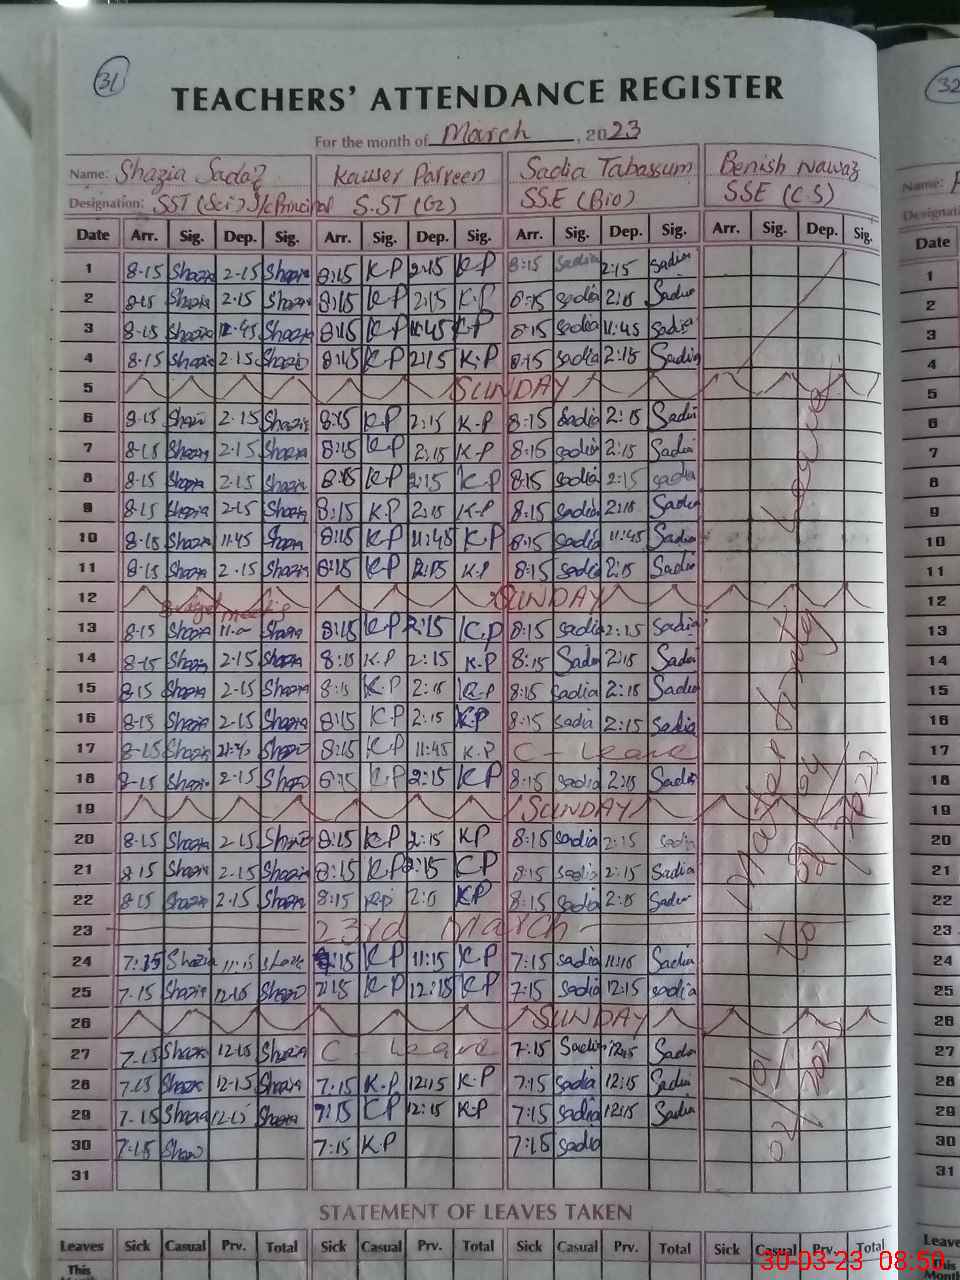 31
32
TEACHERS' ATTENDANCE REGISTER
For the month of March, 2023
Name: Shazia Sadaf Kauser Parveen Sadia Tabassum Benish Nawaz
Designation: SST (Sci) I/c Principal S.ST (G2) SSE (Bio) SSE (C.S)
Date Arr. Sig. Dep. Sig. Arr. Sig. Dep. Sig. Arr. Sig. Dep. Sig. Arr. Sig. Dep. Sig. Date
1 8-15 Shazia 2-15 Shazia 8:15 K.P 2:15 K.P 8:15 Sadia 2:15 Sadia 1
2 8-15 Shazia 2-15 Shazia 8:15 K.P 2:15 K.P 8:15 sadia 2:15 Sadia 2
3 8-15 Shazia 11.45 Shazia 8:15 K.P 11:45 K.P 8:15 sadia 11:45 Sadia 3
4 8-15 Shazia 2-15 Shazia 8:15 K.P 2:15 K.P 8:15 sadia 2:15 Sadia 4
5 SUNDAY 5
6 8-15 Shazia 2-15 Shazia 8:15 K.P 2:15 K.P 8:15 Sadia 2:15 Sadia 6
7 8-15 Shazia 2-15 Shazia 8:15 K.P 2:15 K.P 8:15 sadia 2:15 Sadia 7
8 8-15 Shazia 2-15 Shazia 8:15 K.P 2:15 K.P 8:15 sadia 2:15 sadia 8
9 8-15 Shazia 2-15 Shazia 8:15 K.P 2:15 K.P 8:15 sadia 2:15 Sadia 9
10 8-15 Shazia 11.45 Shazia 8:15 K.P 11:45 K.P 8:15 sadia 11:45 Sadia 10
11 8-15 Shazia 2-15 Shazia 8:15 K.P 2:15 K.P 8:15 Sadia 2:15 Sadia 11
12 SUNDAY 12
meeting
13 8-15 Shazia 11.0 Shazia 8:15 K.P 2:15 K.P 8:15 Sadia 2:15 Sadia 13
14 8-15 Shazia 2-15 Shazia 8:15 K.P 2:15 K.P 8:15 Sadia 2:15 Sadia 14
15 8-15 Shazia 2-15 Shazia 8:15 K.P 2:15 K.P 8:15 Sadia 2:15 Sadia 15
16 8-15 Shazia 2-15 Shazia 8:15 K.P 2:15 K.P 8:15 sadia 2:15 Sadia 16
17 8-15 Shazia Shazia 8:15 K.P 11:45 K.P C - Leave 17
18 8-15 Shazia 2-15 Shazia 8:15 K.P 2:15 K.P 8:15 sadia 2:15 Sadia 18
19 SUNDAY 19
20 8-15 Shazia 2-15 Shazia 8:15 K.P 2:15 K.P 8:15 sadia 2:15 sadia 20
21 8-15 Shazia 2-15 Shazia 8:15 K.P 2:15 K.P 8:15 Sadia 2:15 Sadia 21
22 8-15 Shazia 2-15 Shazia 8:15 K.P K.P 8:15 Sadia 2:15 Sadia 22
23 23rd March 23
24 7:15 Shazia 11:15 Shazia 7:15 K.P 11:15 K.P 7:15 sadia 11:15 Sadia 24
25 7-15 Shazia 12-15 Shazia 7:15 K.P 12:15 K.P 7:15 sadia 12:15 sadia 25
26 SUNDAY 26
27 7-15 Shazia 12-15 Shazia C - Leave 7:15 Sadia 12:15 Sadia 27
28 7-15 Shazia 12-15 Shazia 7:15 K.P 12:15 K.P 7:15 Sadia 12:15 Sadia 28
29 7-15 Shazia 12-15 Shazia 7:15 K.P 12:15 K.P 7:15 sadia 12:15 Sadia 29
30 7:15 Shazia 7:15 K.P 7:15 sadia 30
31 31
02/01/2023 to
Maternity Leave
STATEMENT OF LEAVES TAKEN
Leaves Sick Casual Prv. Total Sick Casual Prv. Total Sick Casual Prv. Total Sick Casual Prv. Total Leaves
This This
30-03-23 08:50